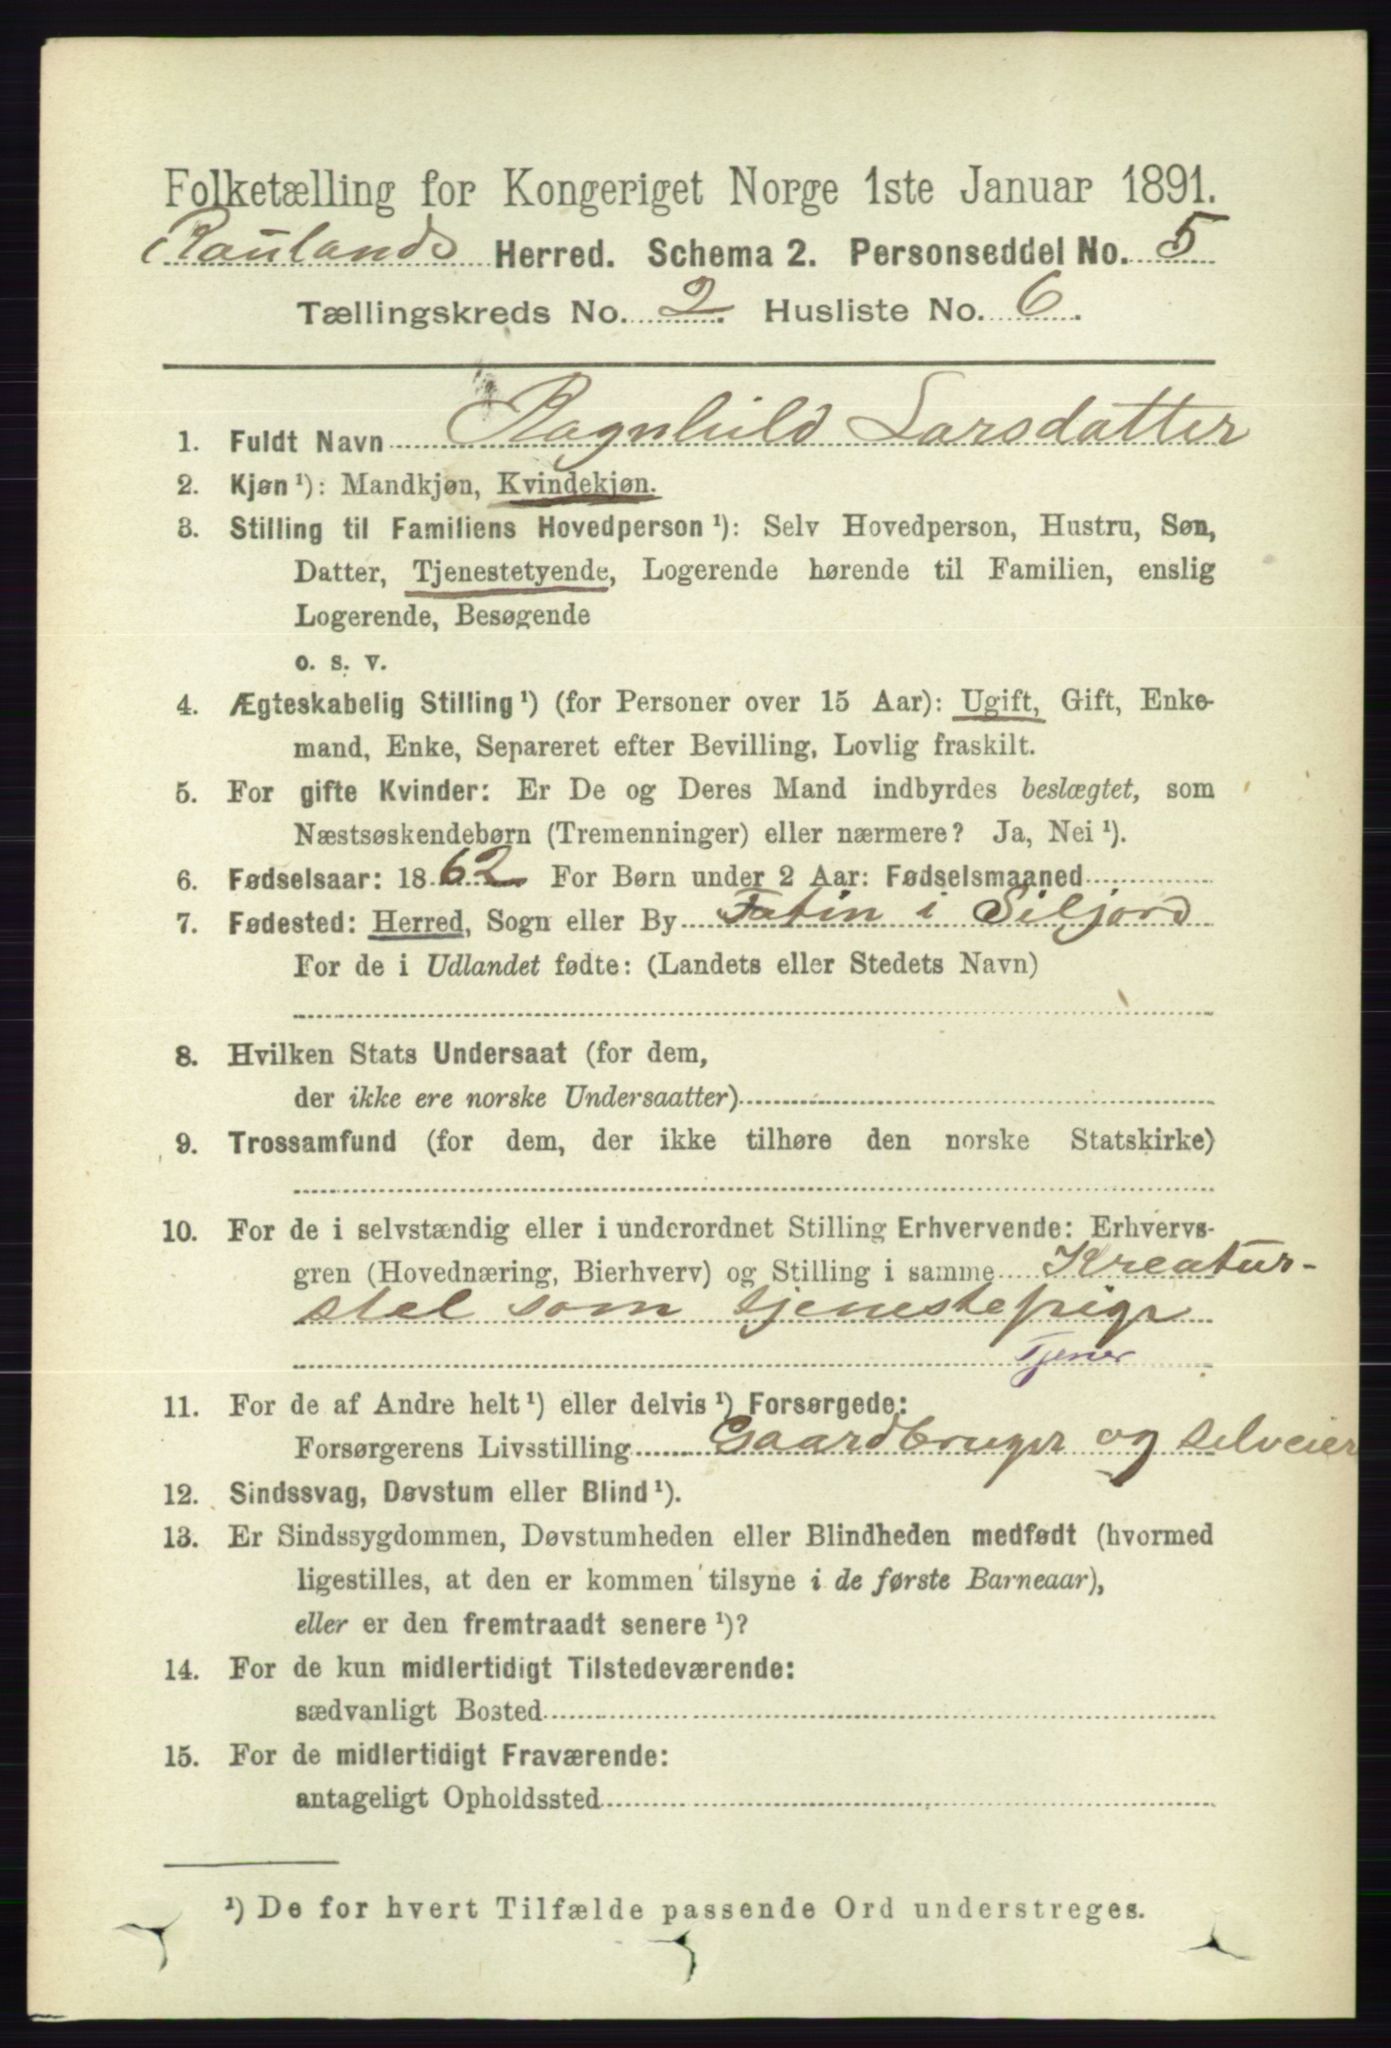 Folketælling for Kongeriget Norge 1ste Januar 1891.
Raulands Herred. Schema 2. Personseddel No. 5
Tællingskreds No. 2. Husliste No. 6.
1. Fuldt Navn Ragnhild Larsdatter
2. Kjøn ¹): Mandkjøn, Kvindekjøn.
3. Stilling til Familiens Hovedperson ¹): Selv Hovedperson, Hustru, Søn,
Datter, Tjenestetyende, Logerende hørende til Familien, enslig
Logerende, Besøgende
o. s. v.
4. Ægteskabelig Stilling ¹) (for Personer over 15 Aar): Ugift, Gift, Enke-
mand, Enke, Separeret efter Bevilling, Lovlig fraskilt.
5. For gifte Kvinder: Er De og Deres Mand indbyrdes beslægtet, som
Næstsøskendebørn (Tremenninger) eller nærmere? Ja, Nei ¹).
6. Fødselsaar: 1862 For Børn under 2 Aar: Fødselsmaaned
7. Fødested: Herred, Sogn eller By i Siljord
For de i Udlandet fødte: (Landets eller Stedets Navn)
8. Hvilken Stats Undersaat (for dem,
der ikke ere norske Undersaatter)
9. Trossamfund (for dem, der ikke tilhøre den norske Statskirke)
10. For de i selvstændig eller i underordnet Stilling Erhvervende: Erhvervs-
gren (Hovednæring, Bierhverv) og Stilling i samme Kreatur-
stel som tjenestepige
Tjener
11. For de af Andre helt ¹) eller delvis ¹) Forsørgede:
Forsørgerens Livsstilling Gaardbruger og selveier
12. Sindssvag, Døvstum eller Blind ¹).
13. Er Sindssygdommen, Døvstumheden eller Blindheden medfødt (hvormed
ligestilles, at den er kommen tilsyne i de første Barneaar),
eller er den fremtraadt senere ¹)?
14. For de kun midlertidigt Tilstedeværende:
sædvanligt Bosted
15. For de midlertidigt Fraværende:
antageligt Opholdssted
¹) De for hvert Tilfælde passende Ord understreges.